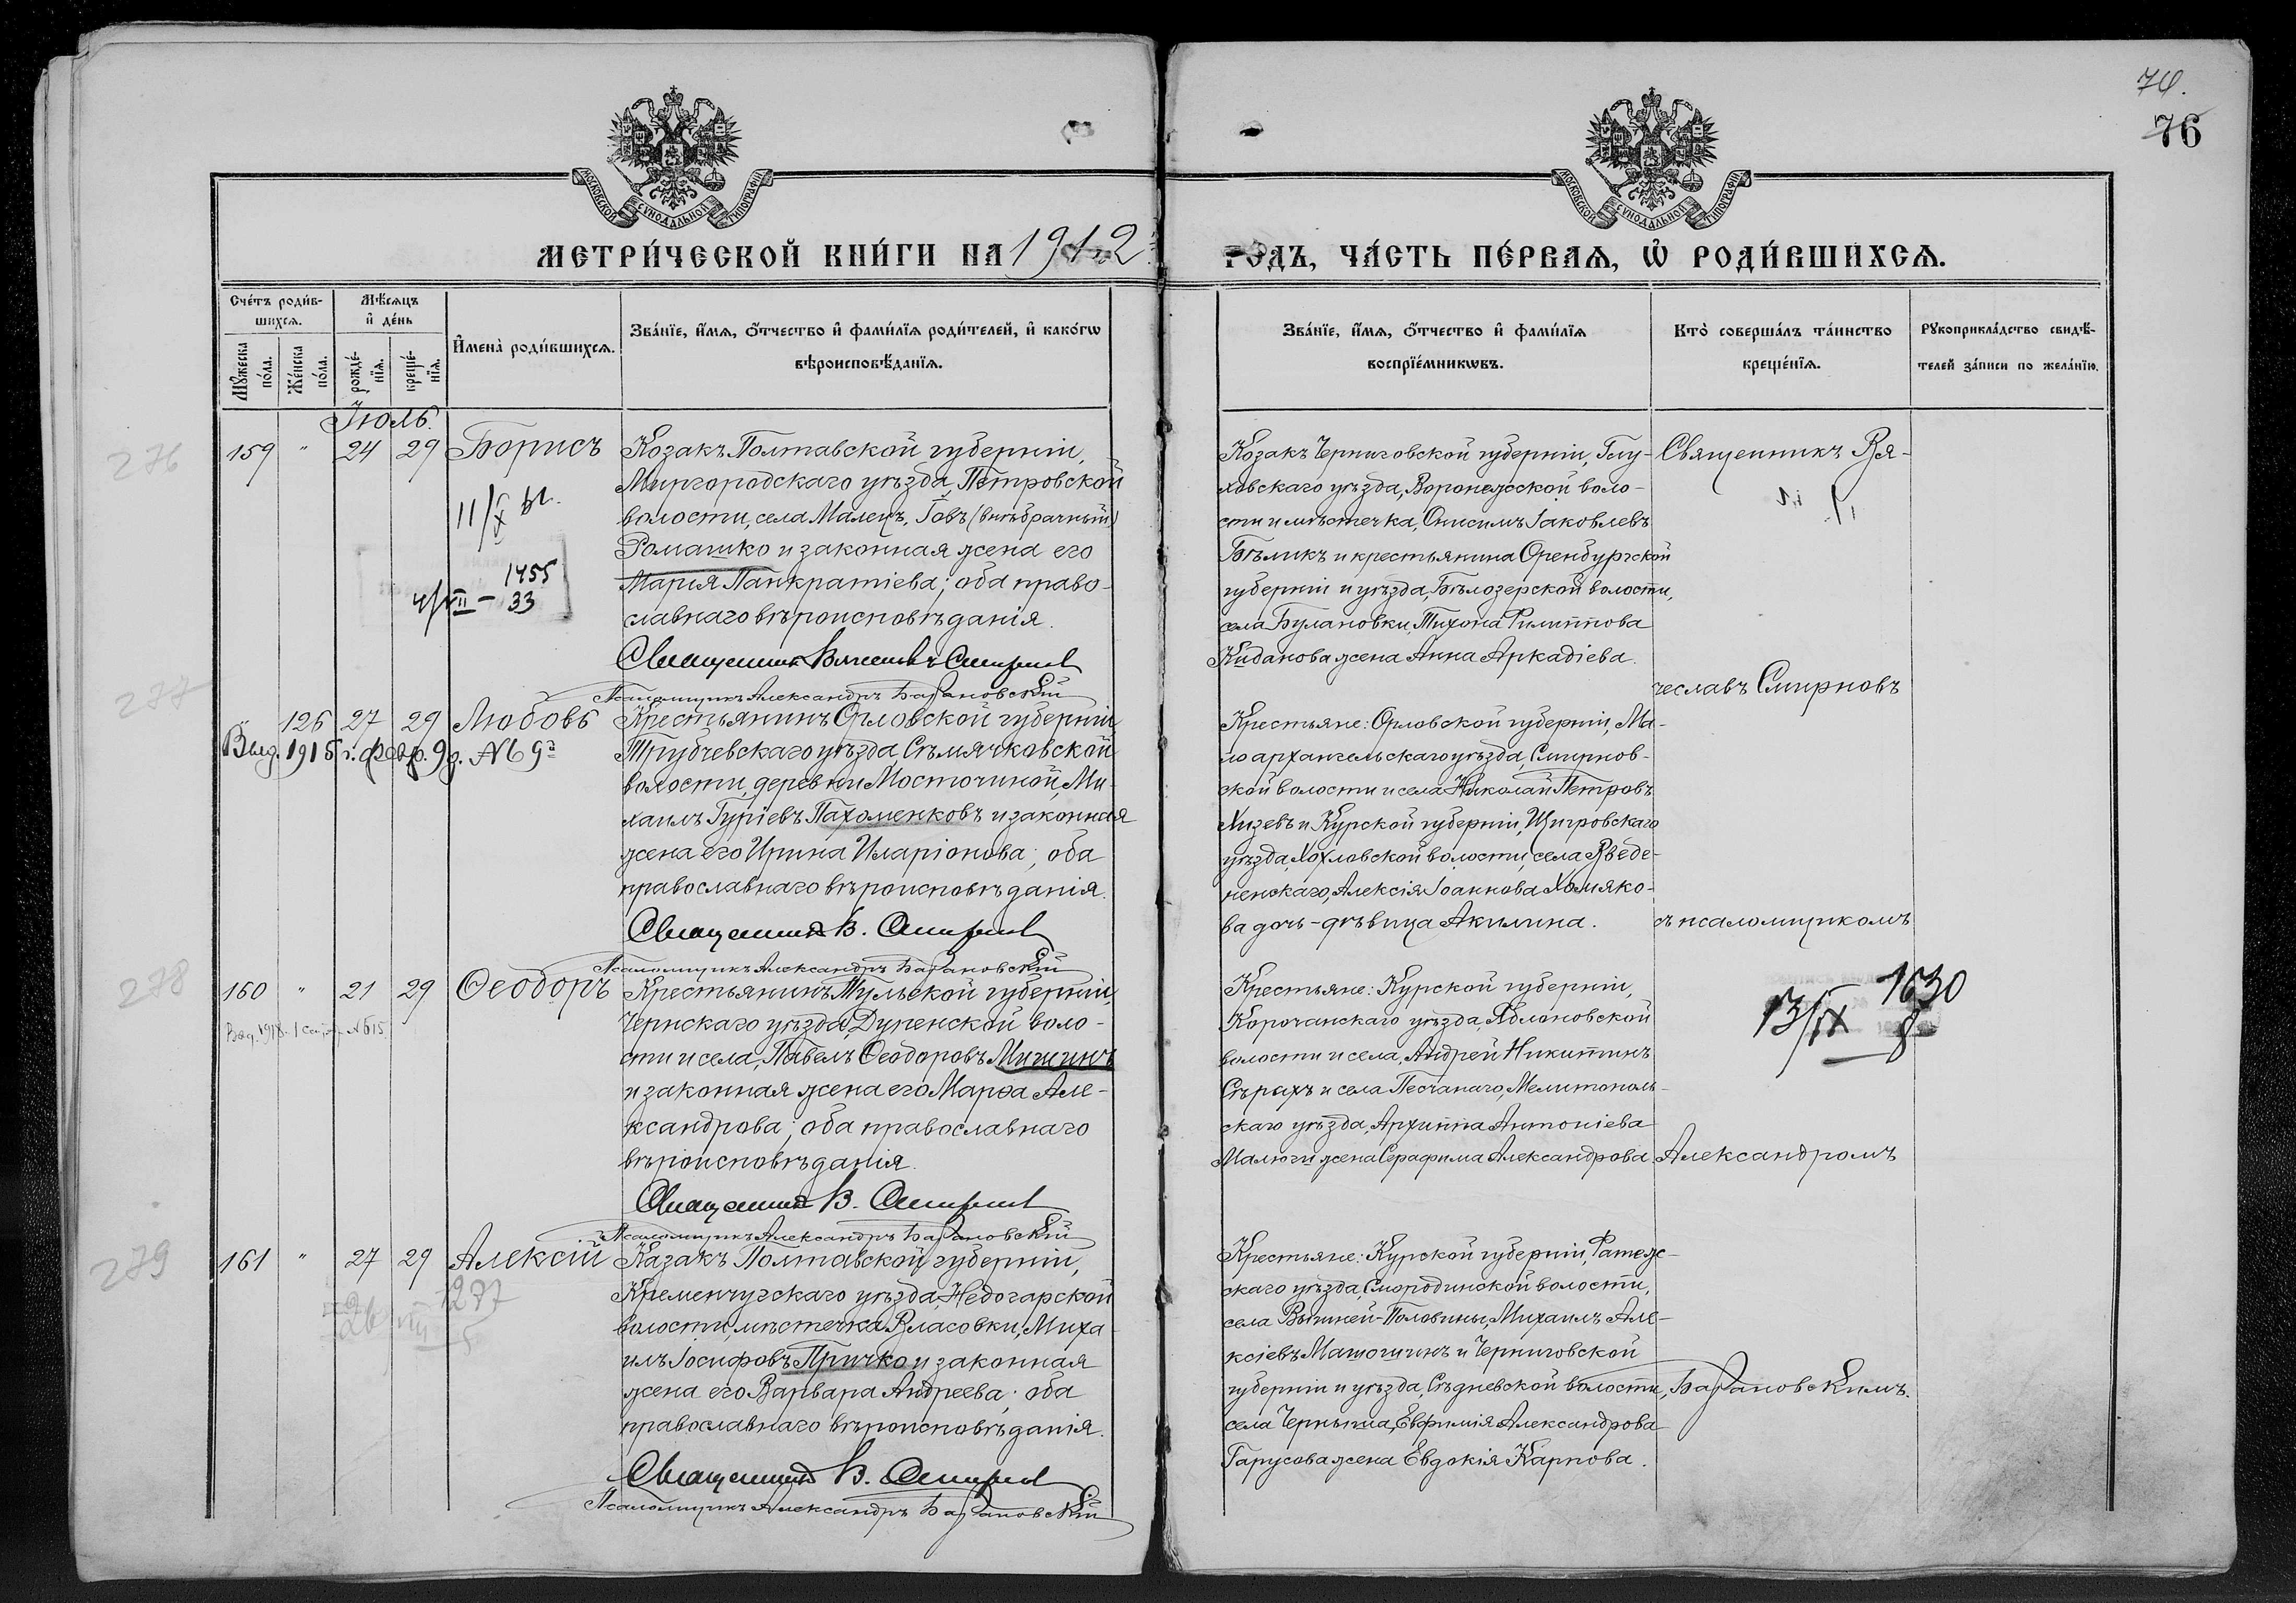 76
МЕТРИ́ЧЕСКОЙ КНИ́ГИ НА 1912
ГОДЪ, ЧА́СТЬ ПЕ́РВАѦ, Ѡ РОДИ́ВШИХСѦ.
МОСКОВСКОЙ СѴНОДАЛЬНОЙ ТИПОГРАФІИ
МОСКОВСКОЙ СѴНОДАЛЬНОЙ ТИПОГРАФІИ
Счетъ родившихсѧ.
Мужеска пола.
Женска пола.
Мѣсѧцъ и день
рожденїѧ.
крещенїѧ.
Имена родившихсѧ.
Званїе, имѧ, отчество и фамилїѧ родителей, и какогѡ
вѣроисповѣданїѧ.
Званїе, имѧ, отчество и фамилїѧ
воспрїемникѡвъ.
Кто совершалъ таинство
крещенїѧ.
Рукоприкладство свидѣ-
телей записи по желанїю.
Іюль.
276
159 " 24 29 Борисъ
11/X
1455
4/VII – 33
Козакъ Полтавской губерніи,
Миргородскаго уѣзда, Петровской
волости, села Малецъ, Іовъ (внѣбрачный)
Ромашко и законная жена его
Марія Панкратіева; оба право-
славнаго вѣроисповѣданія.
Священникъ Вячеславъ Смирновъ
Псаломщикъ Александръ Барановскій
Козакъ Черниговской губерніи, Глу-
ховскаго уѣзда, Воронежской воло-
сти и мѣстечка, Онисимъ Іаковлевъ
Бѣликъ и крестьянина Оренбургской
губерніи и уѣзда, Бѣлозерской волости,
села Булановки, Тихона Филиппова
Киданова жена Анна Аркадіева.
Священникъ Вя-
277
126 27 29 Любовь
Выд. 1915 г. февр. 9 д. №69
Крестьянинъ Орловской губерніи,
Трубчевскаго уѣзда, Сѣмячковской
волости, деревни Мосточиной, Ми-
хаилъ Гуріевъ Пахоменковъ и законная
жена его Ирина Иларіонова; оба
православнаго вѣроисповѣданія.
Священникъ В. Смирновъ
Псаломщикъ Александръ Барановскій
Крестьяне: Орловской губерніи, Ма-
лоархангельскаго уѣзда, Смирнов-
ской волости и села Николай Петровъ
Хизевъ и Курской губерніи, Щигровскаго
уѣзда, Хохловской волости, села Введе-
ненскаго, Алексія Іоаннова Хомяко-
ва дочь-дѣвица Акилина.
чеславъ Смирновъ
съ псаломщикомъ
278
160 " 21 29 Ѳеодоръ
Выд. 1918 г. 1 сент. №515
Крестьянинъ Тульской губерніи,
Чернскаго уѣзда, Дупенской воло-
сти и села, Павелъ Ѳеодоровъ Мишинъ
и законная жена его Марѳа Але-
ксандрова; оба православнаго
вѣроисповѣданія.
Священникъ В. Смирновъ
Псаломщикъ Александръ Барановскій
Крестьяне: Курской губерніи,
Корочанскаго уѣзда, Яблоновской
волости и села, Андрей Никитинъ
Сѣрыхъ и села Песчанаго, Мелитополь-
скаго уѣзда, Архиппа Антоніева
Малюги жена Серафима Александрова.
1630
13/IX 8
Александромъ
279
161 " 27 29 Алексій
1277
Казакъ Полтавской губерніи,
Кременчугскаго уѣзда, Недогарской
волости, мѣстечка Власовки, Миха-
илъ Іосифовъ Причко и законная
жена его Варвара Андреева; оба
православнаго вѣроисповѣданія.
Священникъ В. Смирновъ
Псаломщикъ Александръ Барановскій
Крестьяне: Курской губерніи, Фатеж-
скаго уѣзда, Смородинской волости,
села Вышней-Половины, Михаилъ Але-
ксіевъ Матошинъ и Черниговской
губерніи и уѣзда, Сѣдневской волости,
села Черныша, Евфимія Александрова
Гарусова жена Евдокія Карпова.
Барановскимъ.